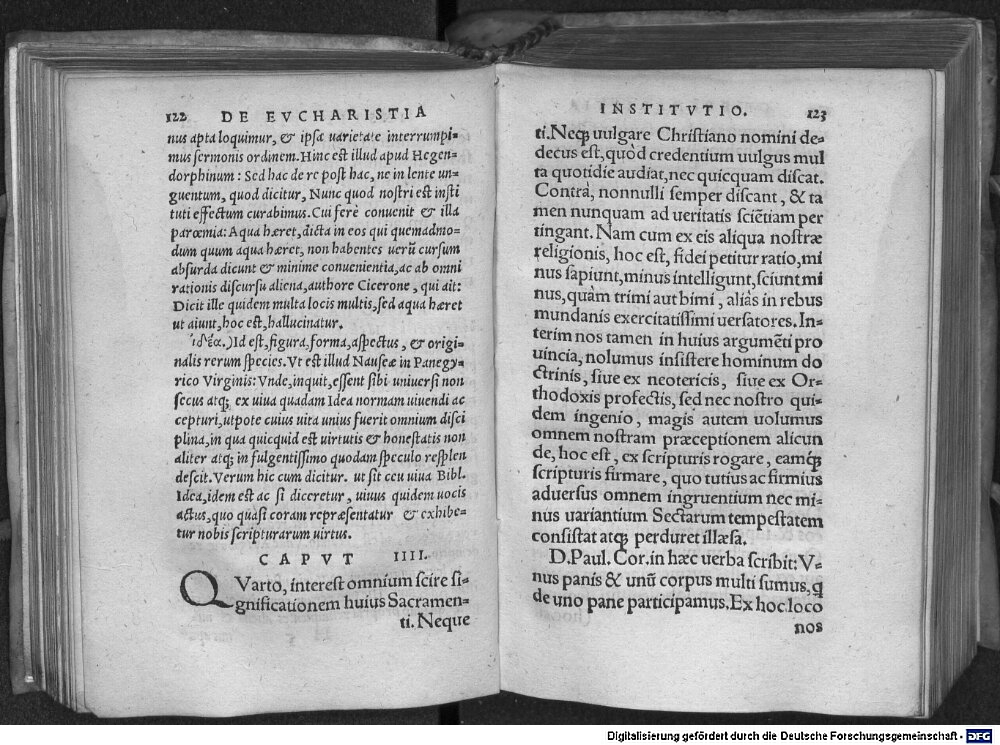 122 DE EVCHARISTIA
nus apta loquimur, & ipsa uarietate interrumpi-
mus sermonis ordinem. Hinc est illud apud Hegen-
dorphinum: Sed hac de re post hac, ne in lente un-
guentum, quod dicitur, Nunc quod nostri est insti
tuti effectum curabimus. Cui ferè conuenit & illa
parœmia: Aqua hæret, dicta in eos qui quemadmo-
dum quum aqua hæret, non habentes uerũ cursum
absurda dicunt & minime conuenientia, ac ab omni
rationis discursu aliena, authore Cicerone, qui ait:
Dicit ille quidem multa locis multis, sed aqua hæret
ut aiunt, hoc est, hallucinatur.
ἰδέα.) Id est, figura, forma, aspectus, & origi-
nalis rerum species. Vt est illud Nauseæ in Panegy-
rico Virginis: Vnde, inquit, essent sibi uniuersi non
secus atq; ex uiua quadam Idea normam uiuendi ac
cepturi, utpote cuius uita unius fuerit omnium disci
plina, in qua quicquid est uirtutis & honestatis non
aliter atq; in fulgentissimo quodam speculo resplen
descit. Verum hic cum dicitur. ut sit ceu uiua Bibl.
Idea, idem est ac si diceretur, uiuus quidem uocis
actus, quo quasi coram repræsentatur & exhibe-
tur nobis scripturarum uirtus.
CAPVT IIII.
QVarto, interest omnium scire si-
gnificationem huius Sacramen-
ti. Neque
INSTITVTIO. 123
ti. Neq; uulgare Christiano nomini de-
decus est, quòd credentium uulgus mul
ta quotidie audiat, nec quicquam discat.
Contrà, nonnulli semper discant, & ta
men nunquam ad ueritatis sciẽtiam per
tingant. Nam cum ex eis aliqua nostræ
religionis, hoc est, fidei petitur ratio, mi
nus sapiunt, minus intelligunt, sciunt mi
nus, quàm trimi aut bimi, aliàs in rebus
mundanis exercitatissimi uersatores. In-
terim nos tamen in huius argumẽti pro
uincia, nolumus insistere hominum do
ctrinis, siue ex neotericis, siue ex Or-
thodoxis profectis, sed nec nostro qui-
dem ingenio, magis autem uolumus
omnem nostram præceptionem alicun
de, hoc est, ex scripturis rogare, eamq;
scripturis firmare, quo tutius ac firmius
aduersus omnem ingruentium nec mi-
nus uariantium Sectarum tempestatem
consistat atq; perduret illæsa.
D. Paul. Cor. in hæc uerba scribit: V-
nus panis & unũ corpus multi sumus, q
de uno pane participamus. Ex hoc loco
nos
Digitalisierung gefördert durch die Deutsche Forschungsgemeinschaft - DFG